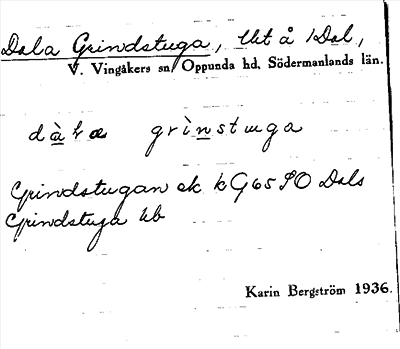 Dala Grindstuga, Ut å Dal,
V. Vingåkers sn, Oppunda hd, Södermanlands län.
grìnstuga
Grindstugan ek kG65SO Dals
Grindstuga hb
Karin Bergström 1936.